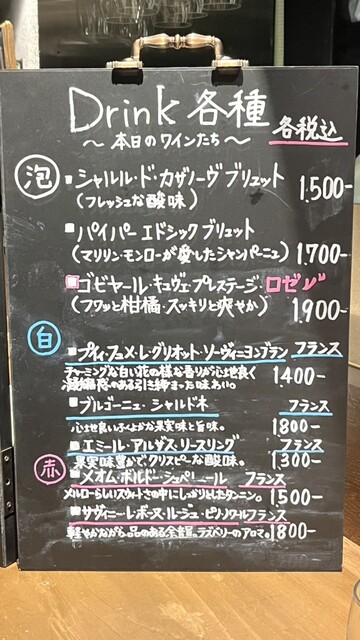 Drink 各種
各税込
〜本日のワインたち〜
泡
シャルル・ド・カザノーヴブリュット
(フレッシュな酸味)
1.500-
パイパーエドシックブリュット
(マリリン・モンローが愛したシャンパーニュ) 1.700-
ゴビヤール・キュヴェ・プレステージ・ロゼ
(フワッと柑橘・スッキリと爽やか) 1.900-
白
プイィ・フュメ・レ・グリオット・ソーヴィニヨンブラン フランス
チャーミングな白い花の様な香りが心地良く
のある引き締まった味わい。 1400-
ブルゴーニュ・シャルドネ フランス
心地良いふくよかな果実味と旨味。 1800-
エミール・アルザス・リースリング フランス
果実味豊かで、クリスピーな酸味。 1,300-
赤
メオム・ボルドー・シュペリール フランス
メルローらしいスウィートさの中にしっかりとしたタンニン。 1,500-
サヴィニー・レ・ボーヌ・ルージュ・ピノノワール フランス
軽やかながら品のある余韻。ラズベリーのアロマ。 1800-